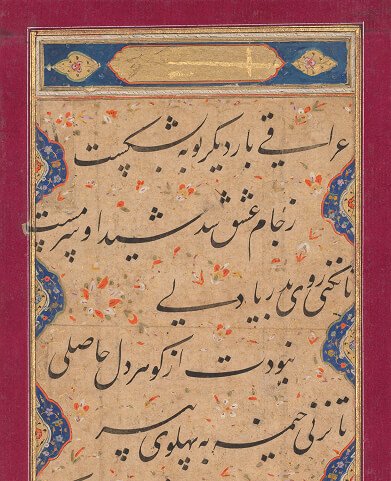 عراقی بار دیگر توبه بشکست
زجام عشق شد شیدا و سرمست
تا نکنی روی بدریا دلی
نبودت از کوهر دل حاصلی
تا نزنی خیمه به پهلوی پیر